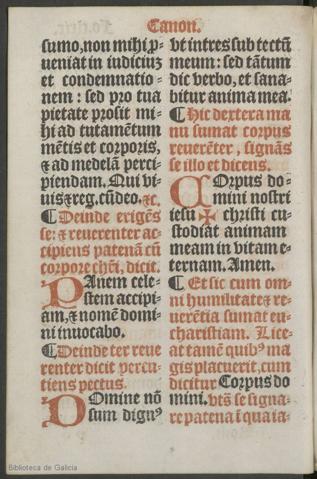 Canon.
sumo, non mihi ꝓ-
ueniat in iudiciuz
et condemnatio-
nem: sed pro tua
pietate prosit mi-
hi ad tutamētum
mētis et corporis,
⁊ ad medelā perci-
piendam. Qui vi-
uis ⁊ reg. cū deo. ⁊c.
¶ Deinde erigēs
se: ⁊ reuerenter ac-
cipiens patenā cū
corpore chri, dicit.
PAnem cele-
stem accipi-
am, ⁊ nomē domi-
ni inuocabo.
¶ Deinde ter reue
renter dicit percu-
tiens pectus.
DOmine nō
sum dignꝰ
vt intres sub tectū
meum: sed tātum
dic verbo, et sana-
bitur anima mea.
¶ Hic dextera ma
nu sumat corpus
reuerēter, signās
se illo et dicens.
COrpus do-
mini nostri
iesu ✠ christi cu-
stodiat animam
meam in vitam e-
ternam. Amen.
¶ Et sic cum om-
ni humilitate ⁊ re-
uerētia sumat eu-
charistiam. Lice-
at tamē quibꝰ ma
gis placuerit, cum
dicitur Corpus do
mini. vts̄ se signa-
re patena ī qua ia-
Biblioteca de Galicia